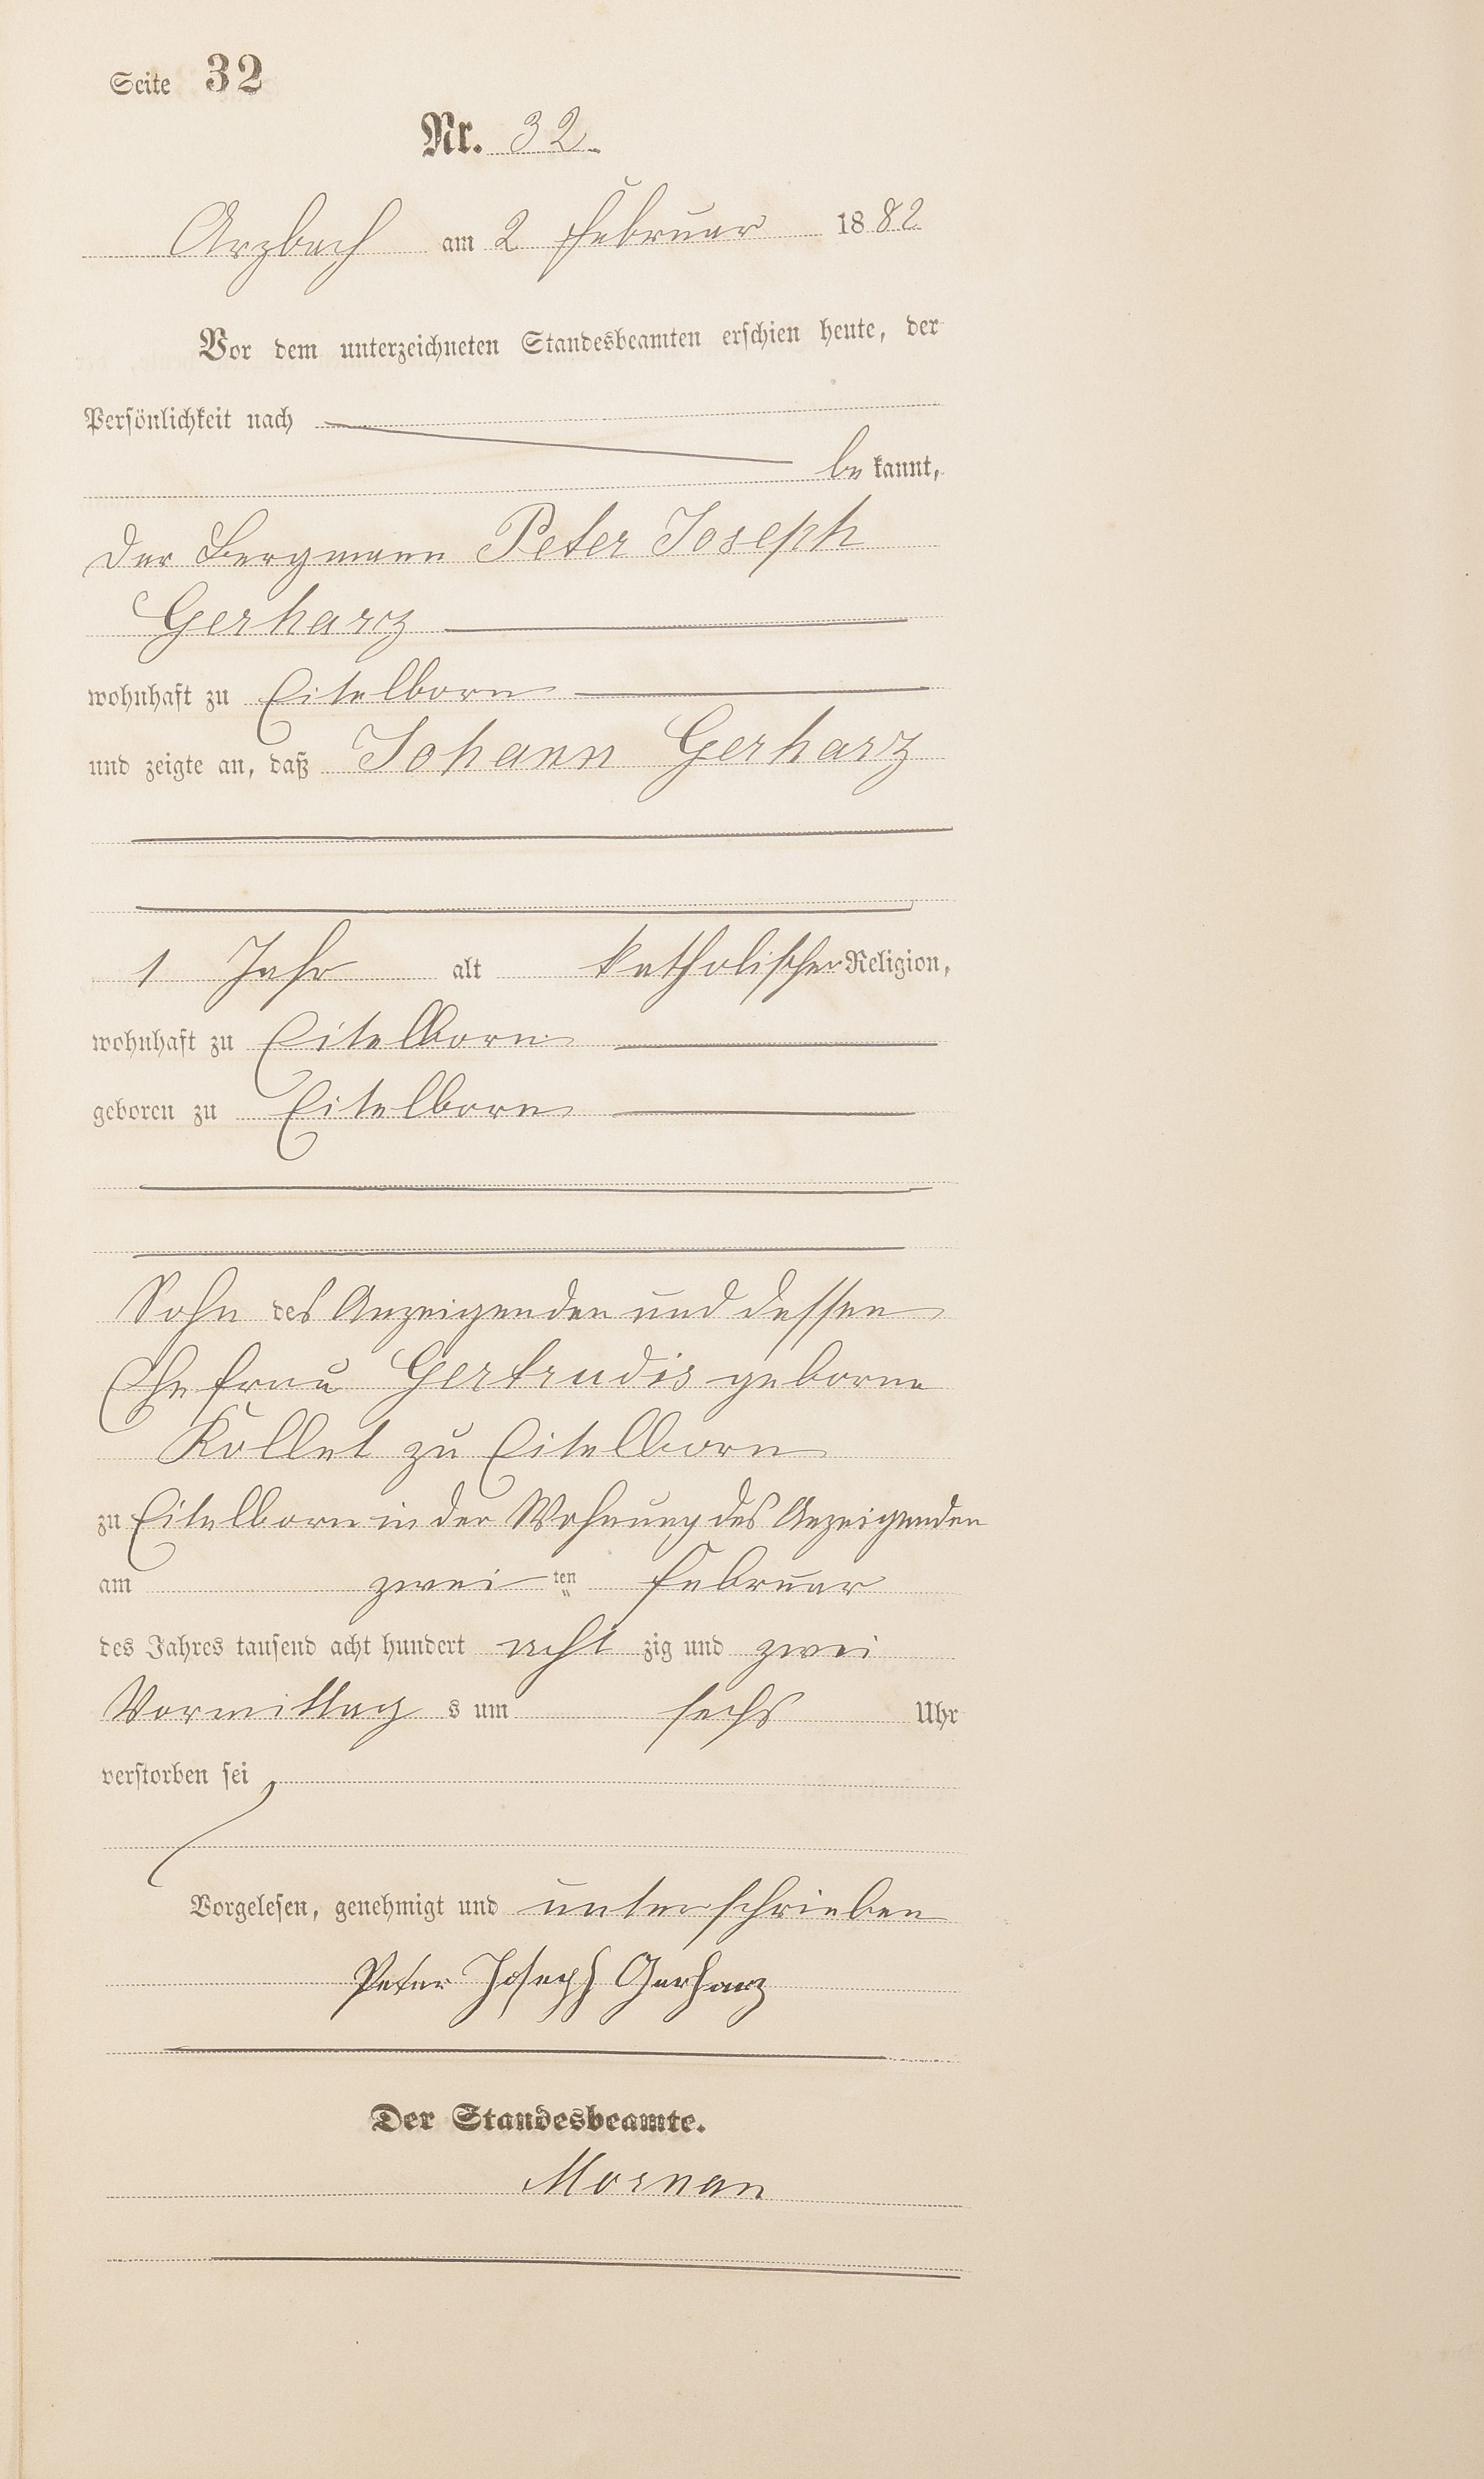 Seite 32
Nr. 32.
Arzbach am 2 Februar 1882
Vor dem unterzeichneten Standesbeamten erschien heute, der
Persönlichkeit nach
be kannt,
der Bergmann Peter Joseph
Gerharz
wohnhaft zu Eitelborn
und zeigte an, daß Johann Gerharz
1 Jahr alt katholischer Religion,
wohnhaft zu Eitelborn
geboren zu Eitelborn
Sohn des Anzeigenden und dessen
Ehefrau Gertrudis geborne
Kollet zu Eitelborn
zu Eitelborn in der Wohnung des Anzeigenden
am zwei ten Februar
des Jahres tausend acht hundert acht zig und zwei
Vormittag s um sechs Uhr
verstorben sei
Vorgelesen, genehmigt und unterschrieben
Peter Joseph Gerharz
Der Standesbeamte.